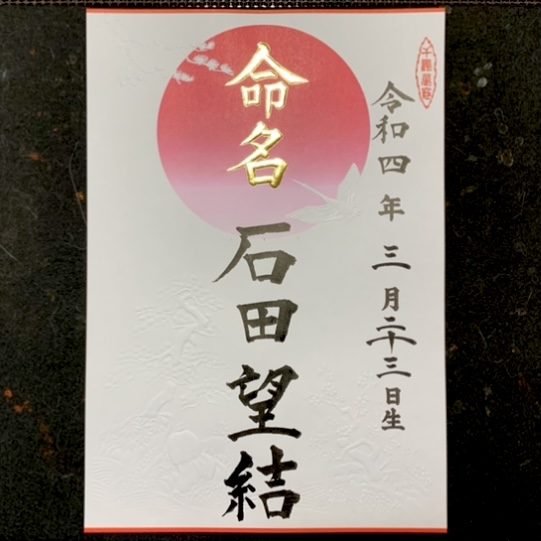 令和四年 三月二十三日生
命名 石田望結